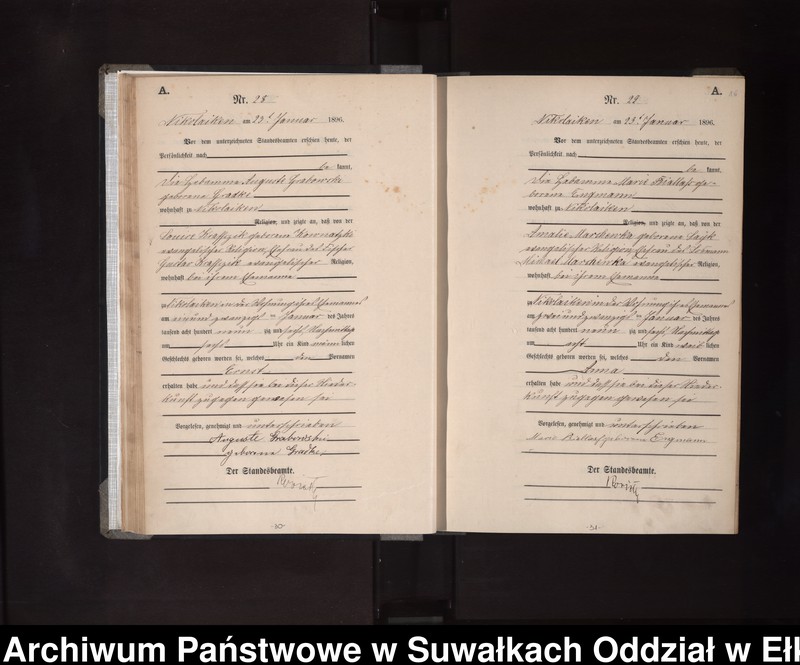 A.
Nr. 28
Nikolaiken am 23t Januar 1896.
Vor dem unterzeichneten Standesbeamten erschien heute, der
Persönlichkeit nach
be kannt,
die Hebamme Auguste Grabowski
geborene Gradtke
wohnhaft zu Nikolaiken
Religion, und zeigte an, daß von der
Louise geborene
evangelischer Religion, Ehefrau des Fischer
Gustav evangelischer Religion,
wohnhaft bei ihrem Ehemanne
zu Nikolaiken in der Wohnung ihres Ehemannes
am ten Januar des Jahres
tausend acht hundert neun zig und sechs, Nachmittags
um Uhr ein Kind männlichen
Geschlechts geboren worden sei, welches den Vornamen
Ernst
erhalten habe und daß sie bei dieser Nieder-
kunft zugegen gewesen sei
Vorgelesen, genehmigt und unterschrieben
Auguste Grabowski
geborene Gradtke
Der Standesbeamte.
-30-
A.
Nr. 29
Nikolaiken am 23t Januar 1896.
Vor dem unterzeichneten Standesbeamten erschien heute, der
Persönlichkeit nach
be kannt,
die Hebamme Marie Biallas ge-
borene Engmann
wohnhaft zu Nikolaiken
Religion, und zeigte an, daß von der
Amalie Marchewka geborene
evangelischer Religion, Ehefrau des
Michael Marchewka evangelischer Religion,
wohnhaft bei ihrem Ehemanne
zu Nikolaiken in der Wohnung ihres Ehemannes
am zweiundzwanzigsten Januar des Jahres
tausend acht hundert neun zig und sechs, Nachmittags
um acht Uhr ein Kind weiblichen
Geschlechts geboren worden sei, welches den Vornamen
Anna
erhalten habe und daß sie bei dieser Nieder-
kunft zugegen gewesen sei
Vorgelesen, genehmigt und unterschrieben
Marie Biallas geborene Engmann
Der Standesbeamte.
-31-
Archiwum Państwowe w Suwałkach Oddział w Ełk